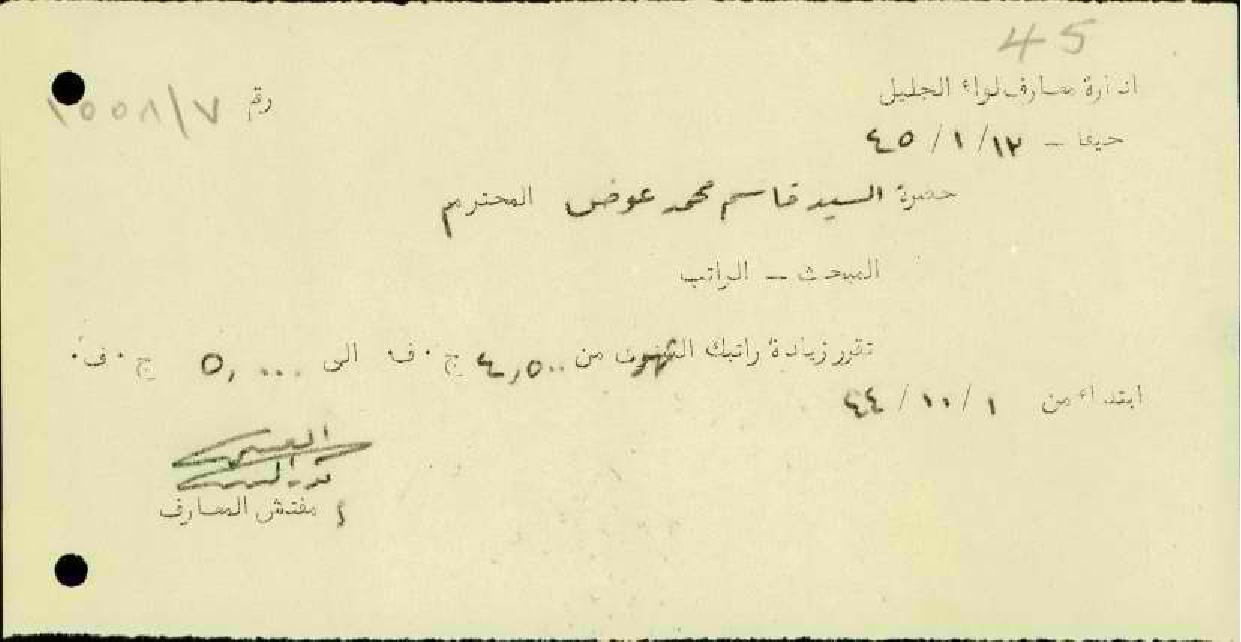 45
ادارة معارف لواء الجليل
رقم ١٥٥٨/٧
حيفا – ١٢/١/٤٥
حضرة السيد قاسم محمد عوض المحترم
المبحث – الراتب
تقرر زيادة راتبك الشهري من ٤,٥٠٠ ج ٠ ف الى ٥,٠٠٠ ج ٠ ف ٠
ابتداء من ١/١٠/٤٤
مفتش المعارف